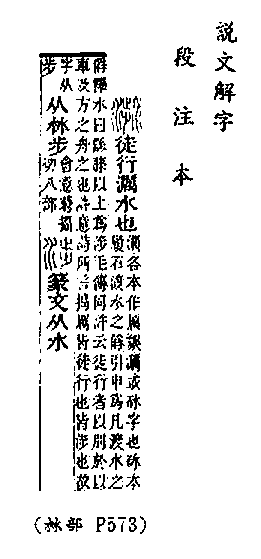 說文解字
段注本
徒行濿水也
濿各本作厲誤濿或砅字也砅本
履石渡水之偁引申爲凡渡水之
偁釋水曰繇膝以上爲涉毛傳同許云徒行者以別於以
車及方之舟之也許意詩所言揭厲皆徒行也皆涉也故
字从
步
从沝步
會意時攝
切八部
篆文从水
(沝部 P573)